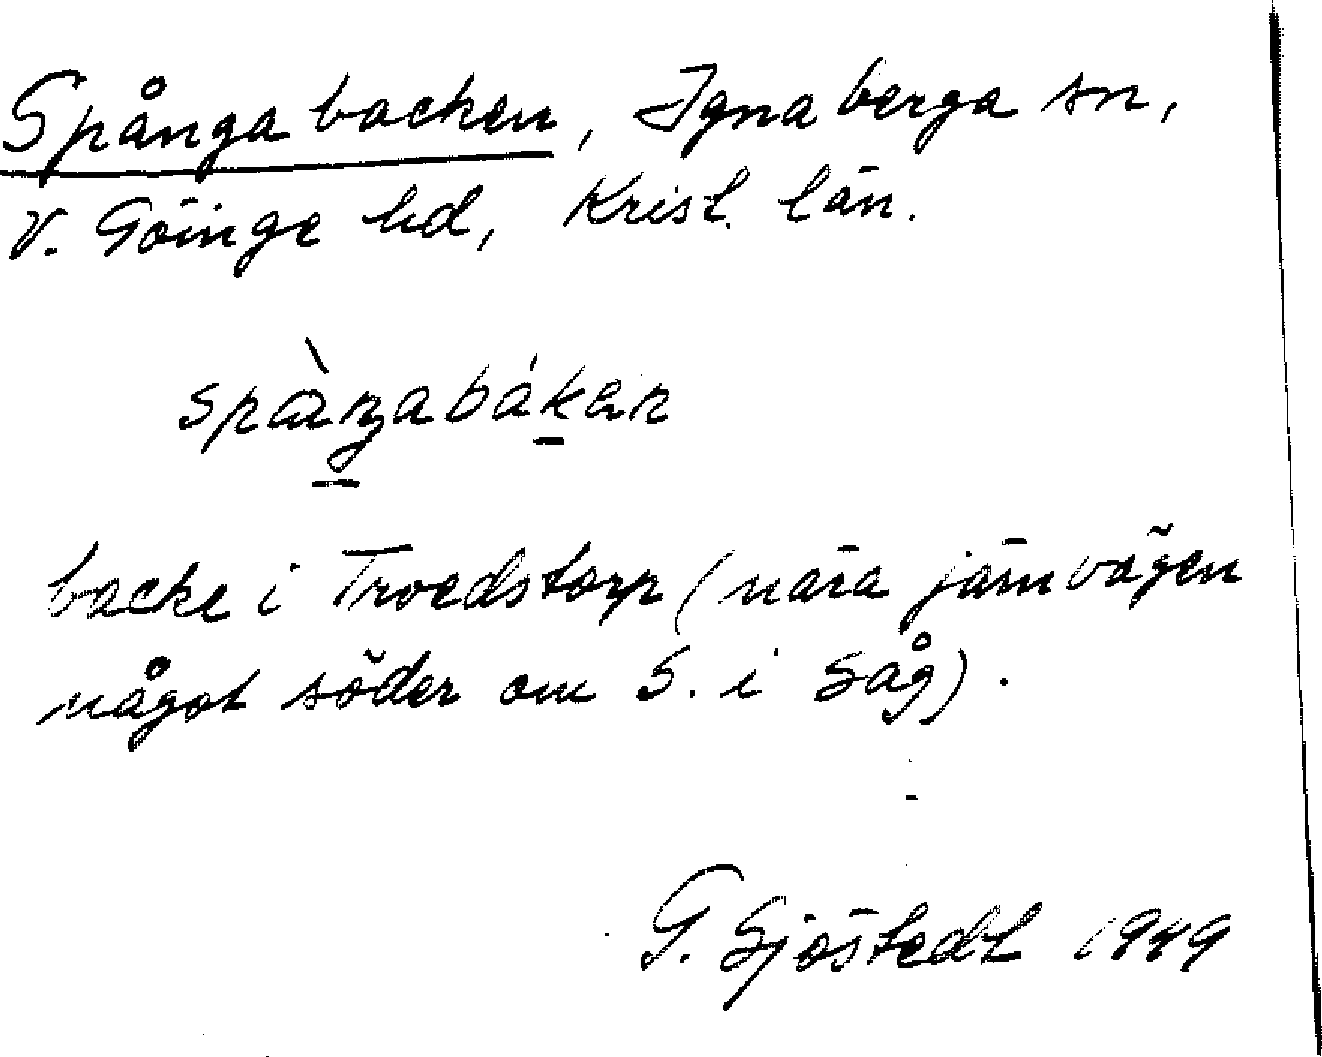 Spångabacken, Ignaberga sn,
V. Göinge hd, Krist. län.
backe i Troedstorp (nära järnvägen
något söder om S. i Såg).
G. Sjöstedt 1949